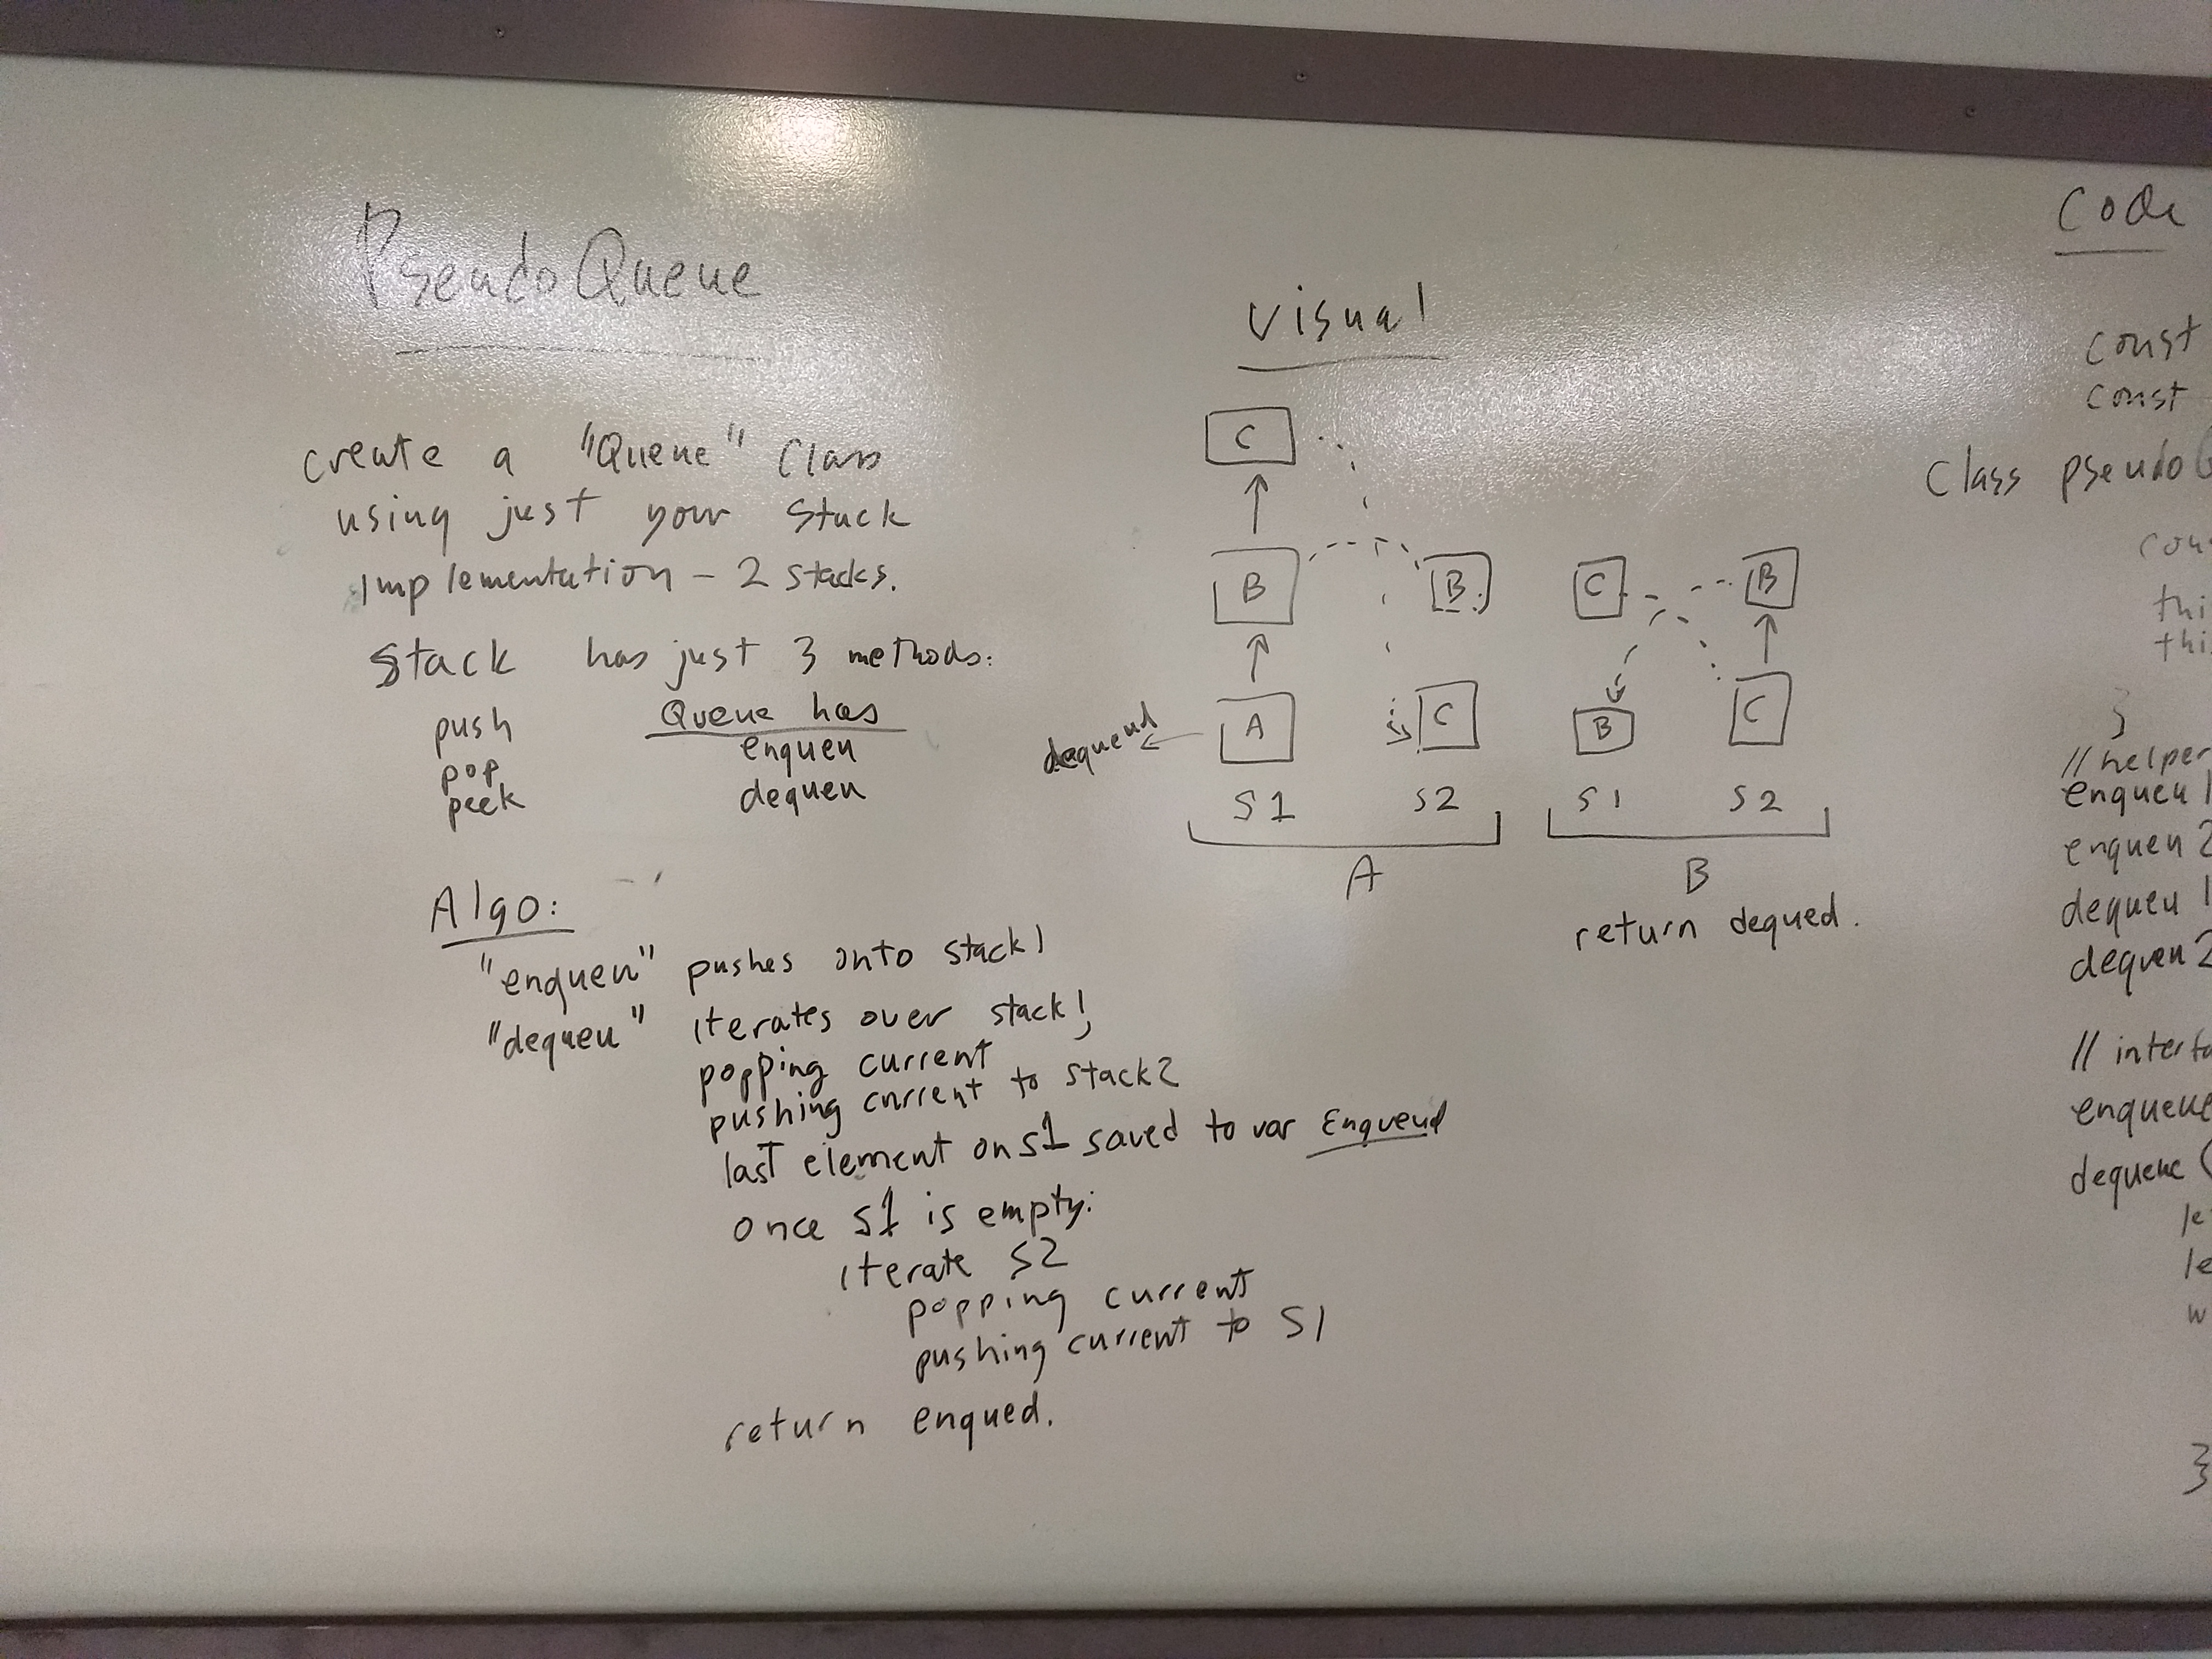 PseudoQueue
create a "Queue" Class
using just your Stack
Implementation - 2 stacks.
Stack has just 3 methods:
push
pop
peek
Queue has
enqueu
dequeu
Algo:
"enqueu" pushes onto stack1
"dequeu" iterates over stack1,
popping current
pushing current to stack2
last element on S1 saved to var Enqueud
once S1 is empty:
iterate S2
popping current
pushing current to S1
return enqued.
Visual
C
B B C B
dequeud A C B C
S1 S2 S1 S2
A B
return dequed.
Code
const
const
Class pseudo
thi
thi
}
// helper
enqueu 1
enqueu 2
dequeu 1
dequeu 2
// interfa
enqueue
dequeue (
le
le
w
}